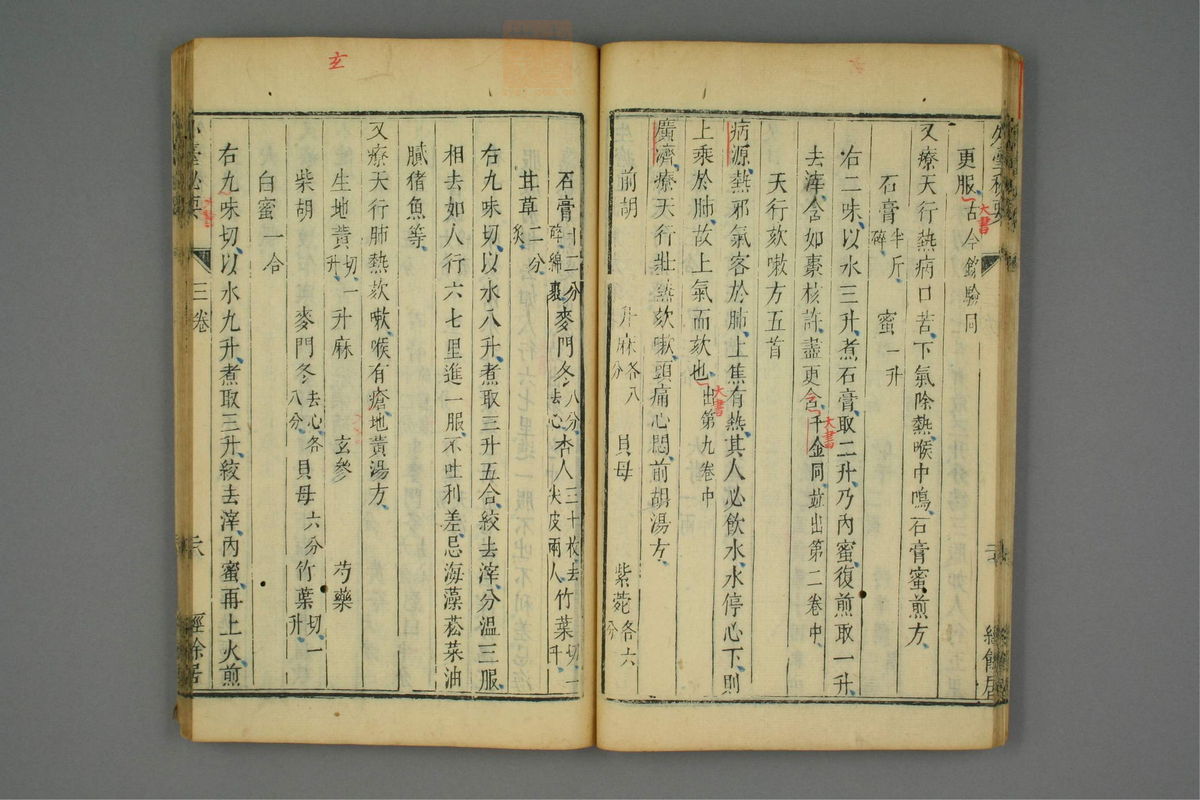 更服古今錄驗同
又療天行熱病口苦下氣除熱喉中鳴石膏蜜煎方
石膏半斤碎 蜜一升
右二味以水三升煮石膏取二升乃內蜜復煎取一升
去滓含如棗核許盡更含千金同並出第二卷中
天行欬嗽方五首
病源熱邪氣客於肺上焦有熱其人必飲水水停心下則
上乘於肺故上氣而欬也出第九卷中
廣濟療天行壯熱欬嗽頭痛心悶前胡湯方
前胡 升麻各八分 貝母 紫菀各六分
石膏十二分碎綿裹 麥門冬八分去心 杏人三十枚去尖皮兩人 竹葉切一升
甘草二分炙
右九味切以水八升煮取三升五合絞去滓分溫三服
相去如人行六七里進一服不吐利差忌海藻菘菜油
膩猪魚等
又療天行肺熱欬嗽喉有瘡地黃湯方
生地黃切一升 升麻 玄參 芍藥
柴胡 麥門冬去心各八分 貝母六分 竹葉切一升
白蜜一合
右九味切以水九升煮取三升絞去滓內蜜再上火煎
三卷
經餘居
大書
大書
大書
大書
玄